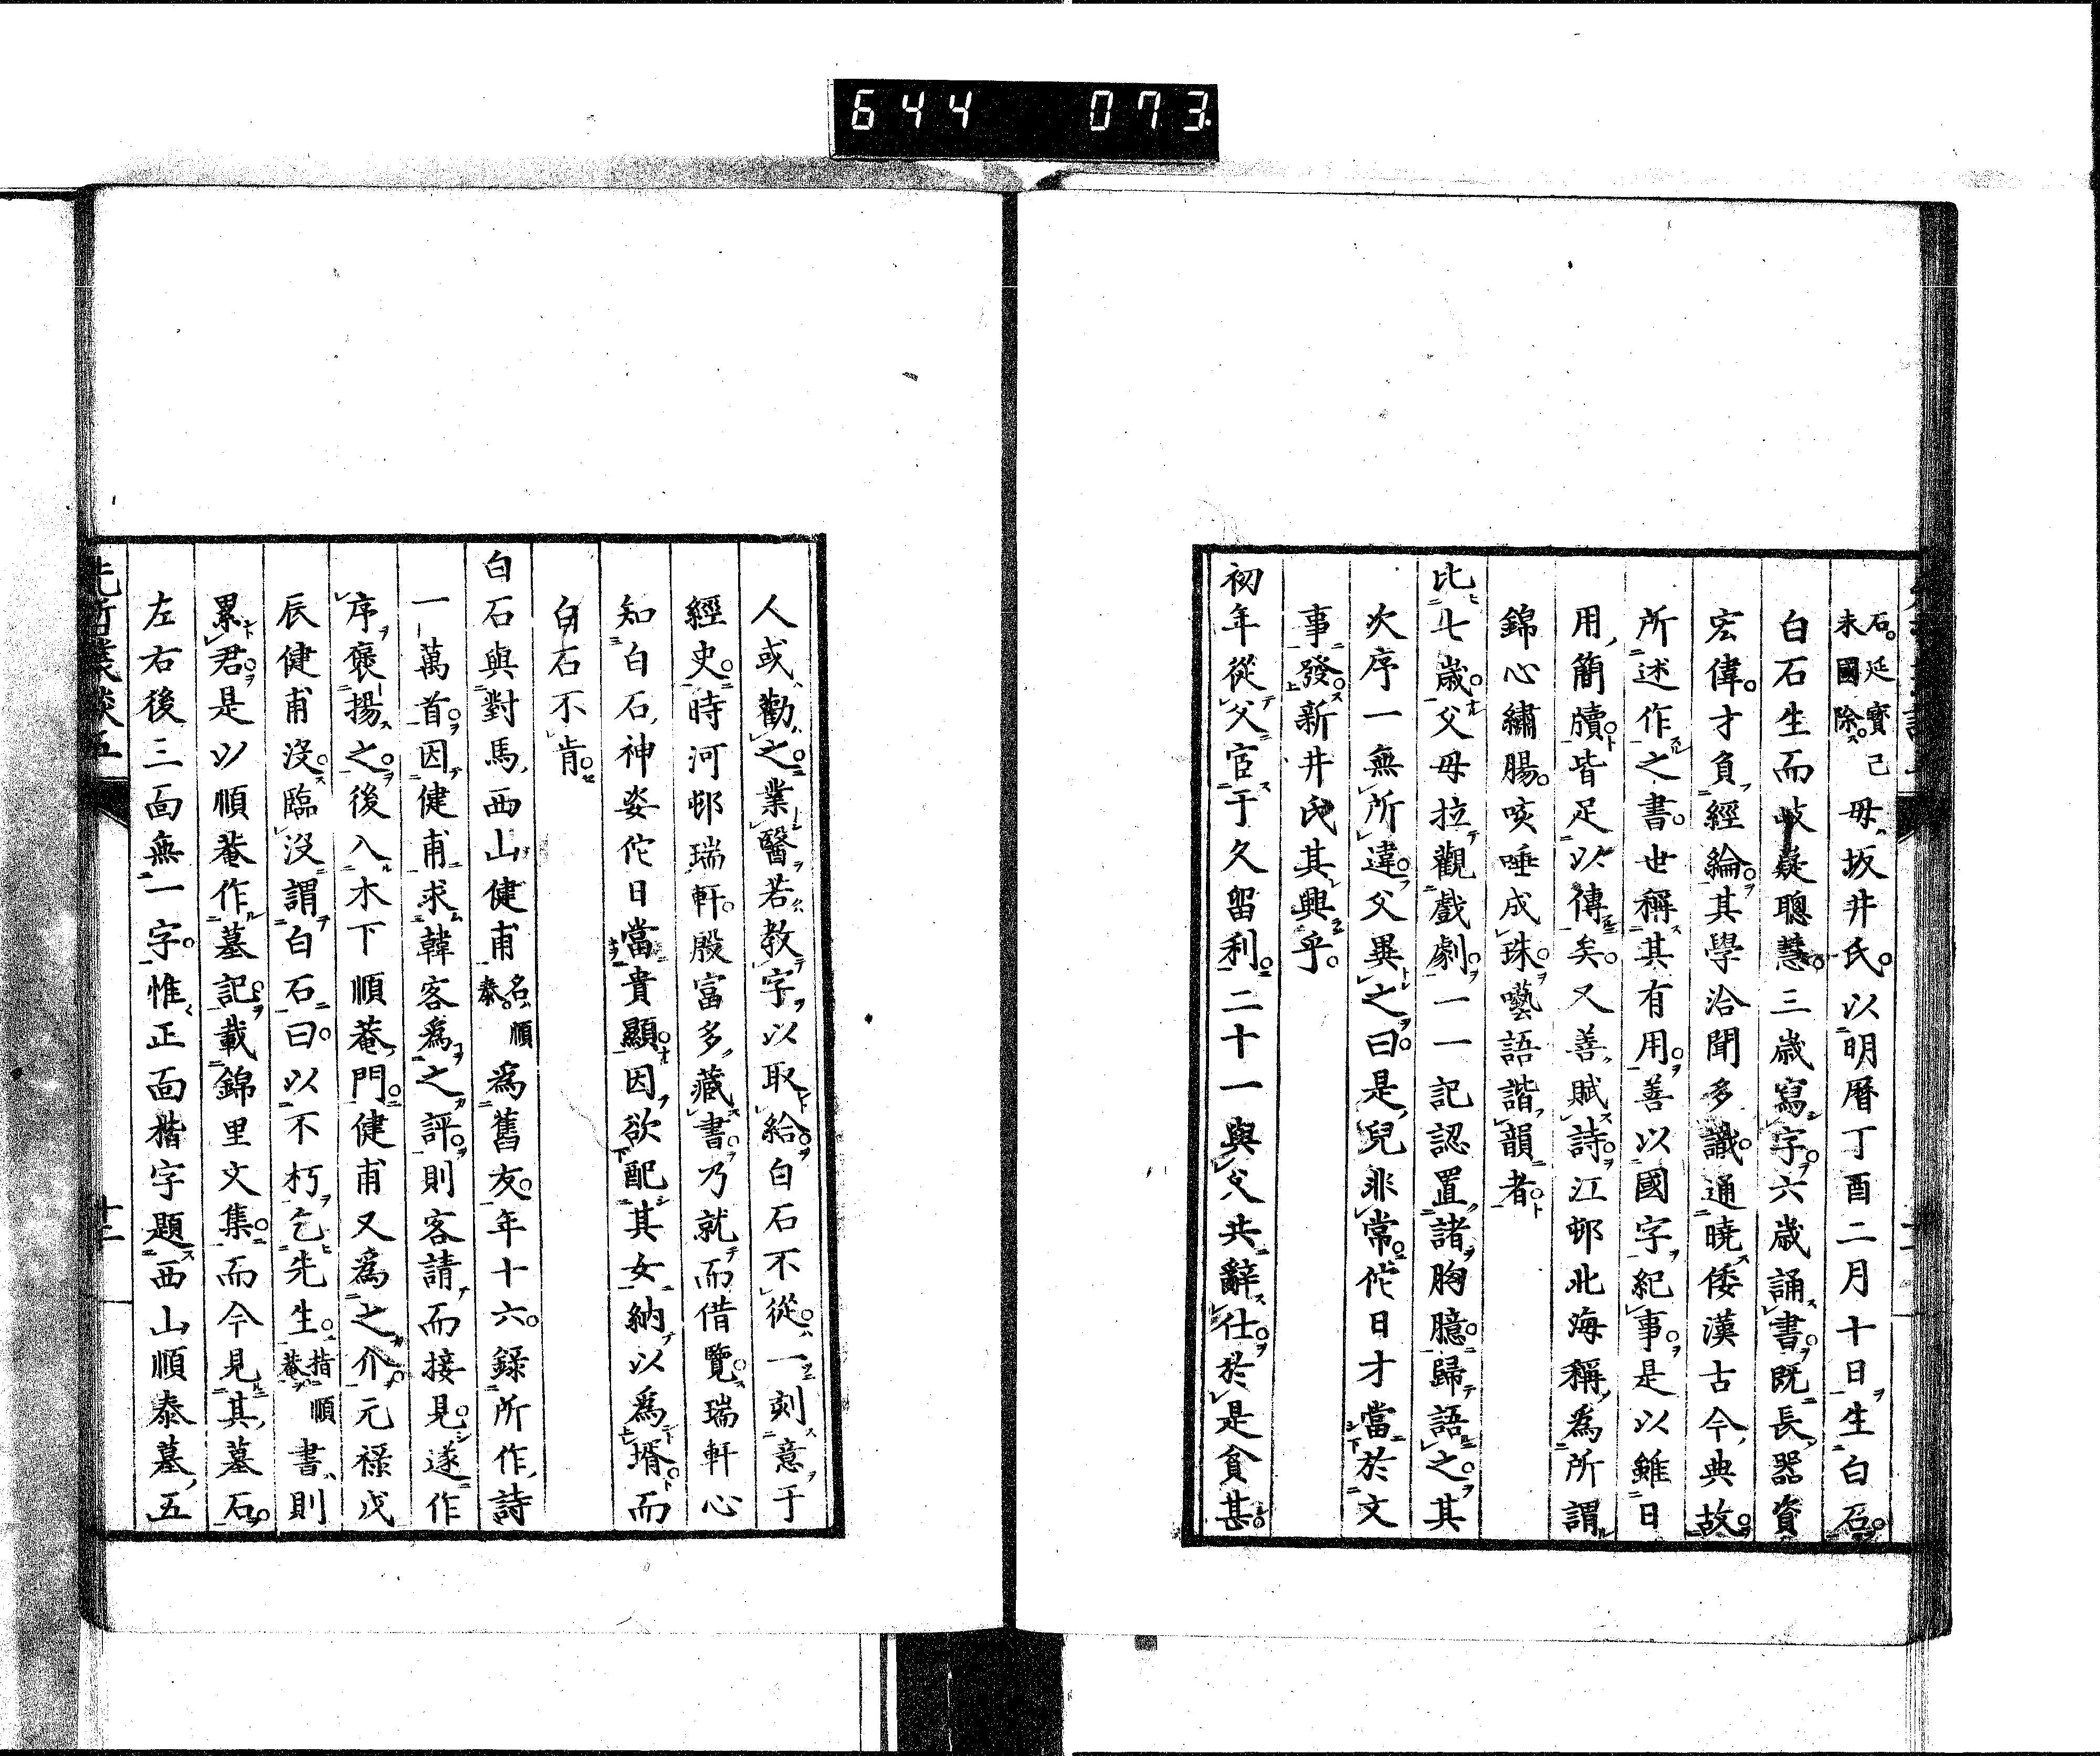 644 073
石。延寶己
未國除。母坂井氏。以明曆丁酉二月十日生白石。
白石生而岐嶷聰慧。三歲寫字。六歲誦書。既長、器資
宏偉。才負經綸。其學洽聞多識。通曉倭漢古今典故。
所述作之書。世稱其有用。善以國字紀事。是以雖日
用簡牘。皆足以傳矣。又善賦詩。江邨北海稱爲所謂
錦心繡腸。咳唾成珠。囈語諧韻者。
比七歲。父母拉觀戲劇。一一記認置諸胸臆。歸語之。其
次序一無所違。父異之曰。是兒非常。佗日才當於文
事發。新井氏其興乎。
初年從父宦于久留利。二十一與父共辭仕。於是貧甚。
人或勸之業醫若教字以取給。白石不從。一刻意于
經史。時河邨瑞軒。殷富多藏書。乃就而借覽。瑞軒心
知白石神姿佗日當貴顯。因欲配其女納以爲壻。而
白石不肯。
白石與對馬西山健甫名順
泰。爲舊友。年十六。錄所作詩
一萬首。因健甫求韓客爲之評。則客請而接見。遂作
序褒揚之。後入木下順菴門。健甫又爲之介。元祿戊
辰健甫沒。臨沒謂白石曰。以不朽乞先生。指順
菴。書則
累君。是以順菴作墓記。載錦里文集。而今見其墓石。
左右後三面無一字。惟正面楷字題西山順泰墓五
先哲叢談五
十二